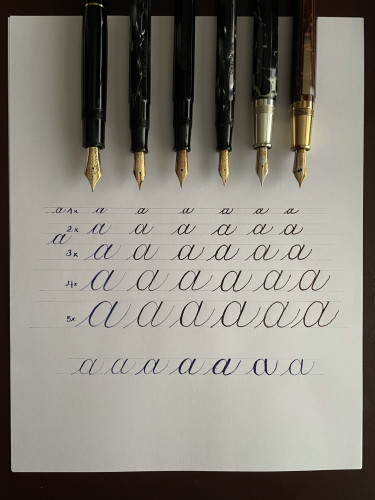 a 1x a a a a a a
2x a a a a a a
a
3x a a a a a a
4x a a a a a a
5x a a a a a a
a a a a a a a